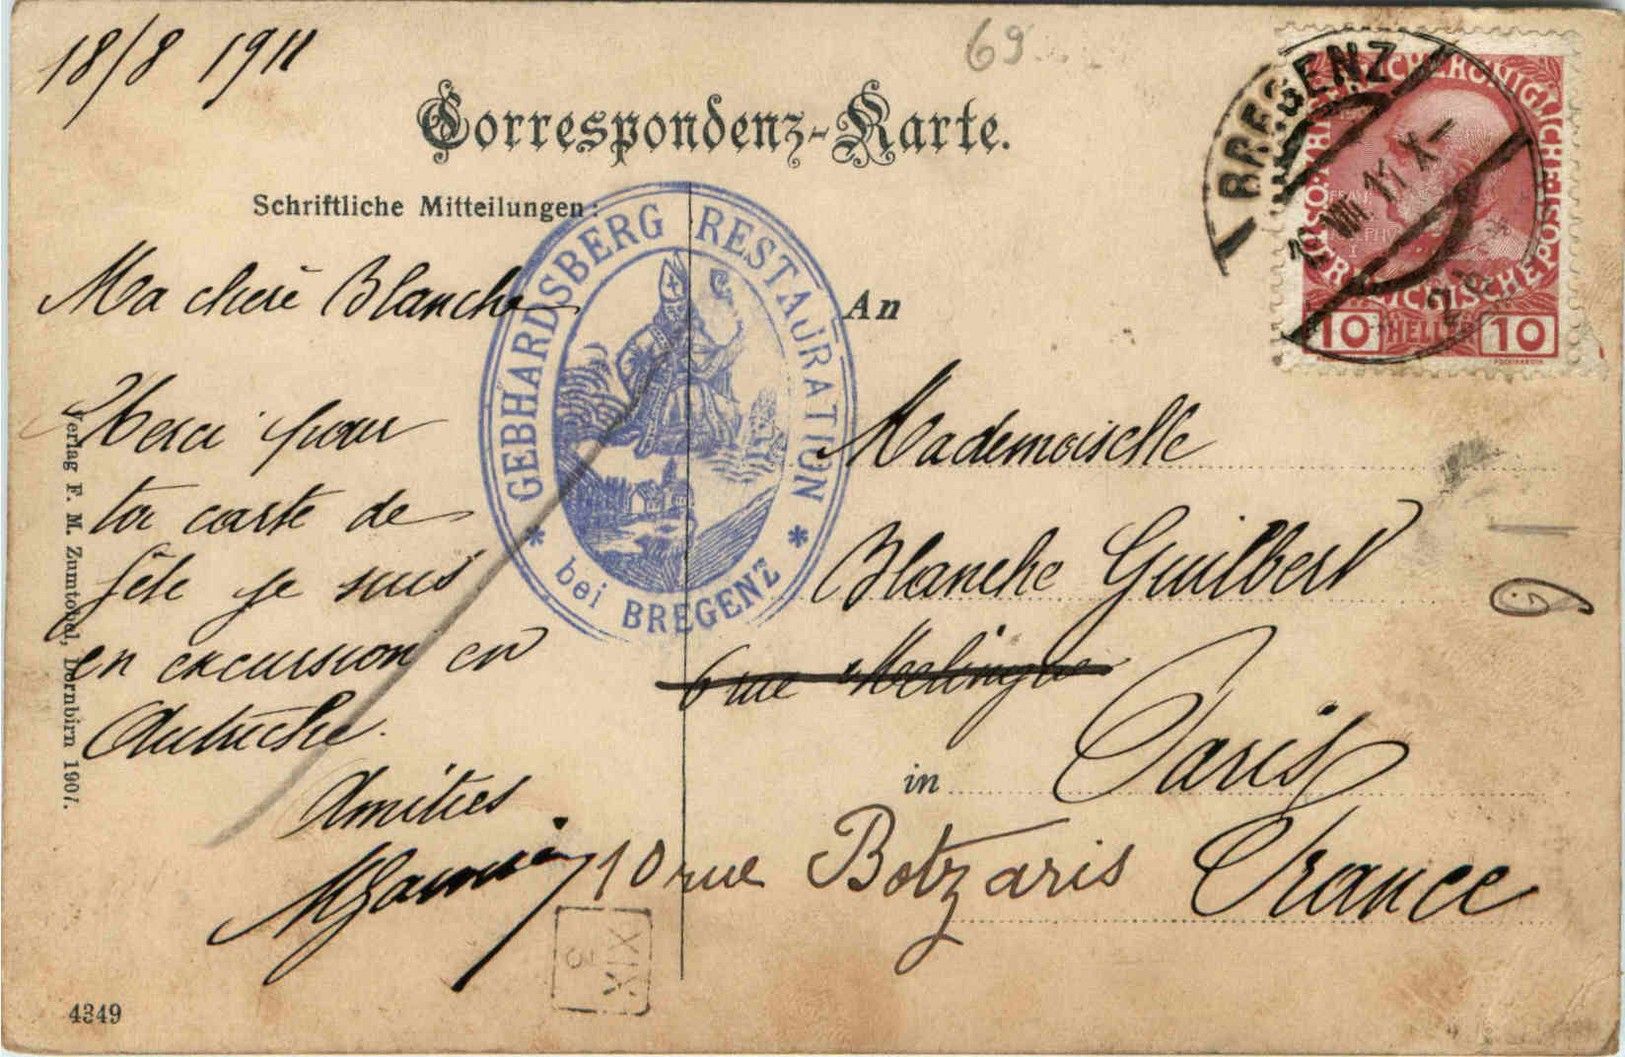 18/8 1911
69
Correspondenz-Karte.
Schriftliche Mitteilungen:
Ma chère Blanche
Merci pour
ta carte de
fête je suis
en excursion en
Autriche.
Amitiés
Verlag F. M. Zumtobel, Dornbirn 1907.
4349
GEBHARDSBERG RESTAURATION
* bei BREGENZ *
BREGENZ
VIII. 11 X–
KAISERLICHE KÖNIGLICHE ÖSTERREICHISCHE POST
10 HELLER 10
An
Mademoiselle
Blanche Guilbert
6 rue Mélingue
in Paris
10 rue Botzaris France
XIX
3